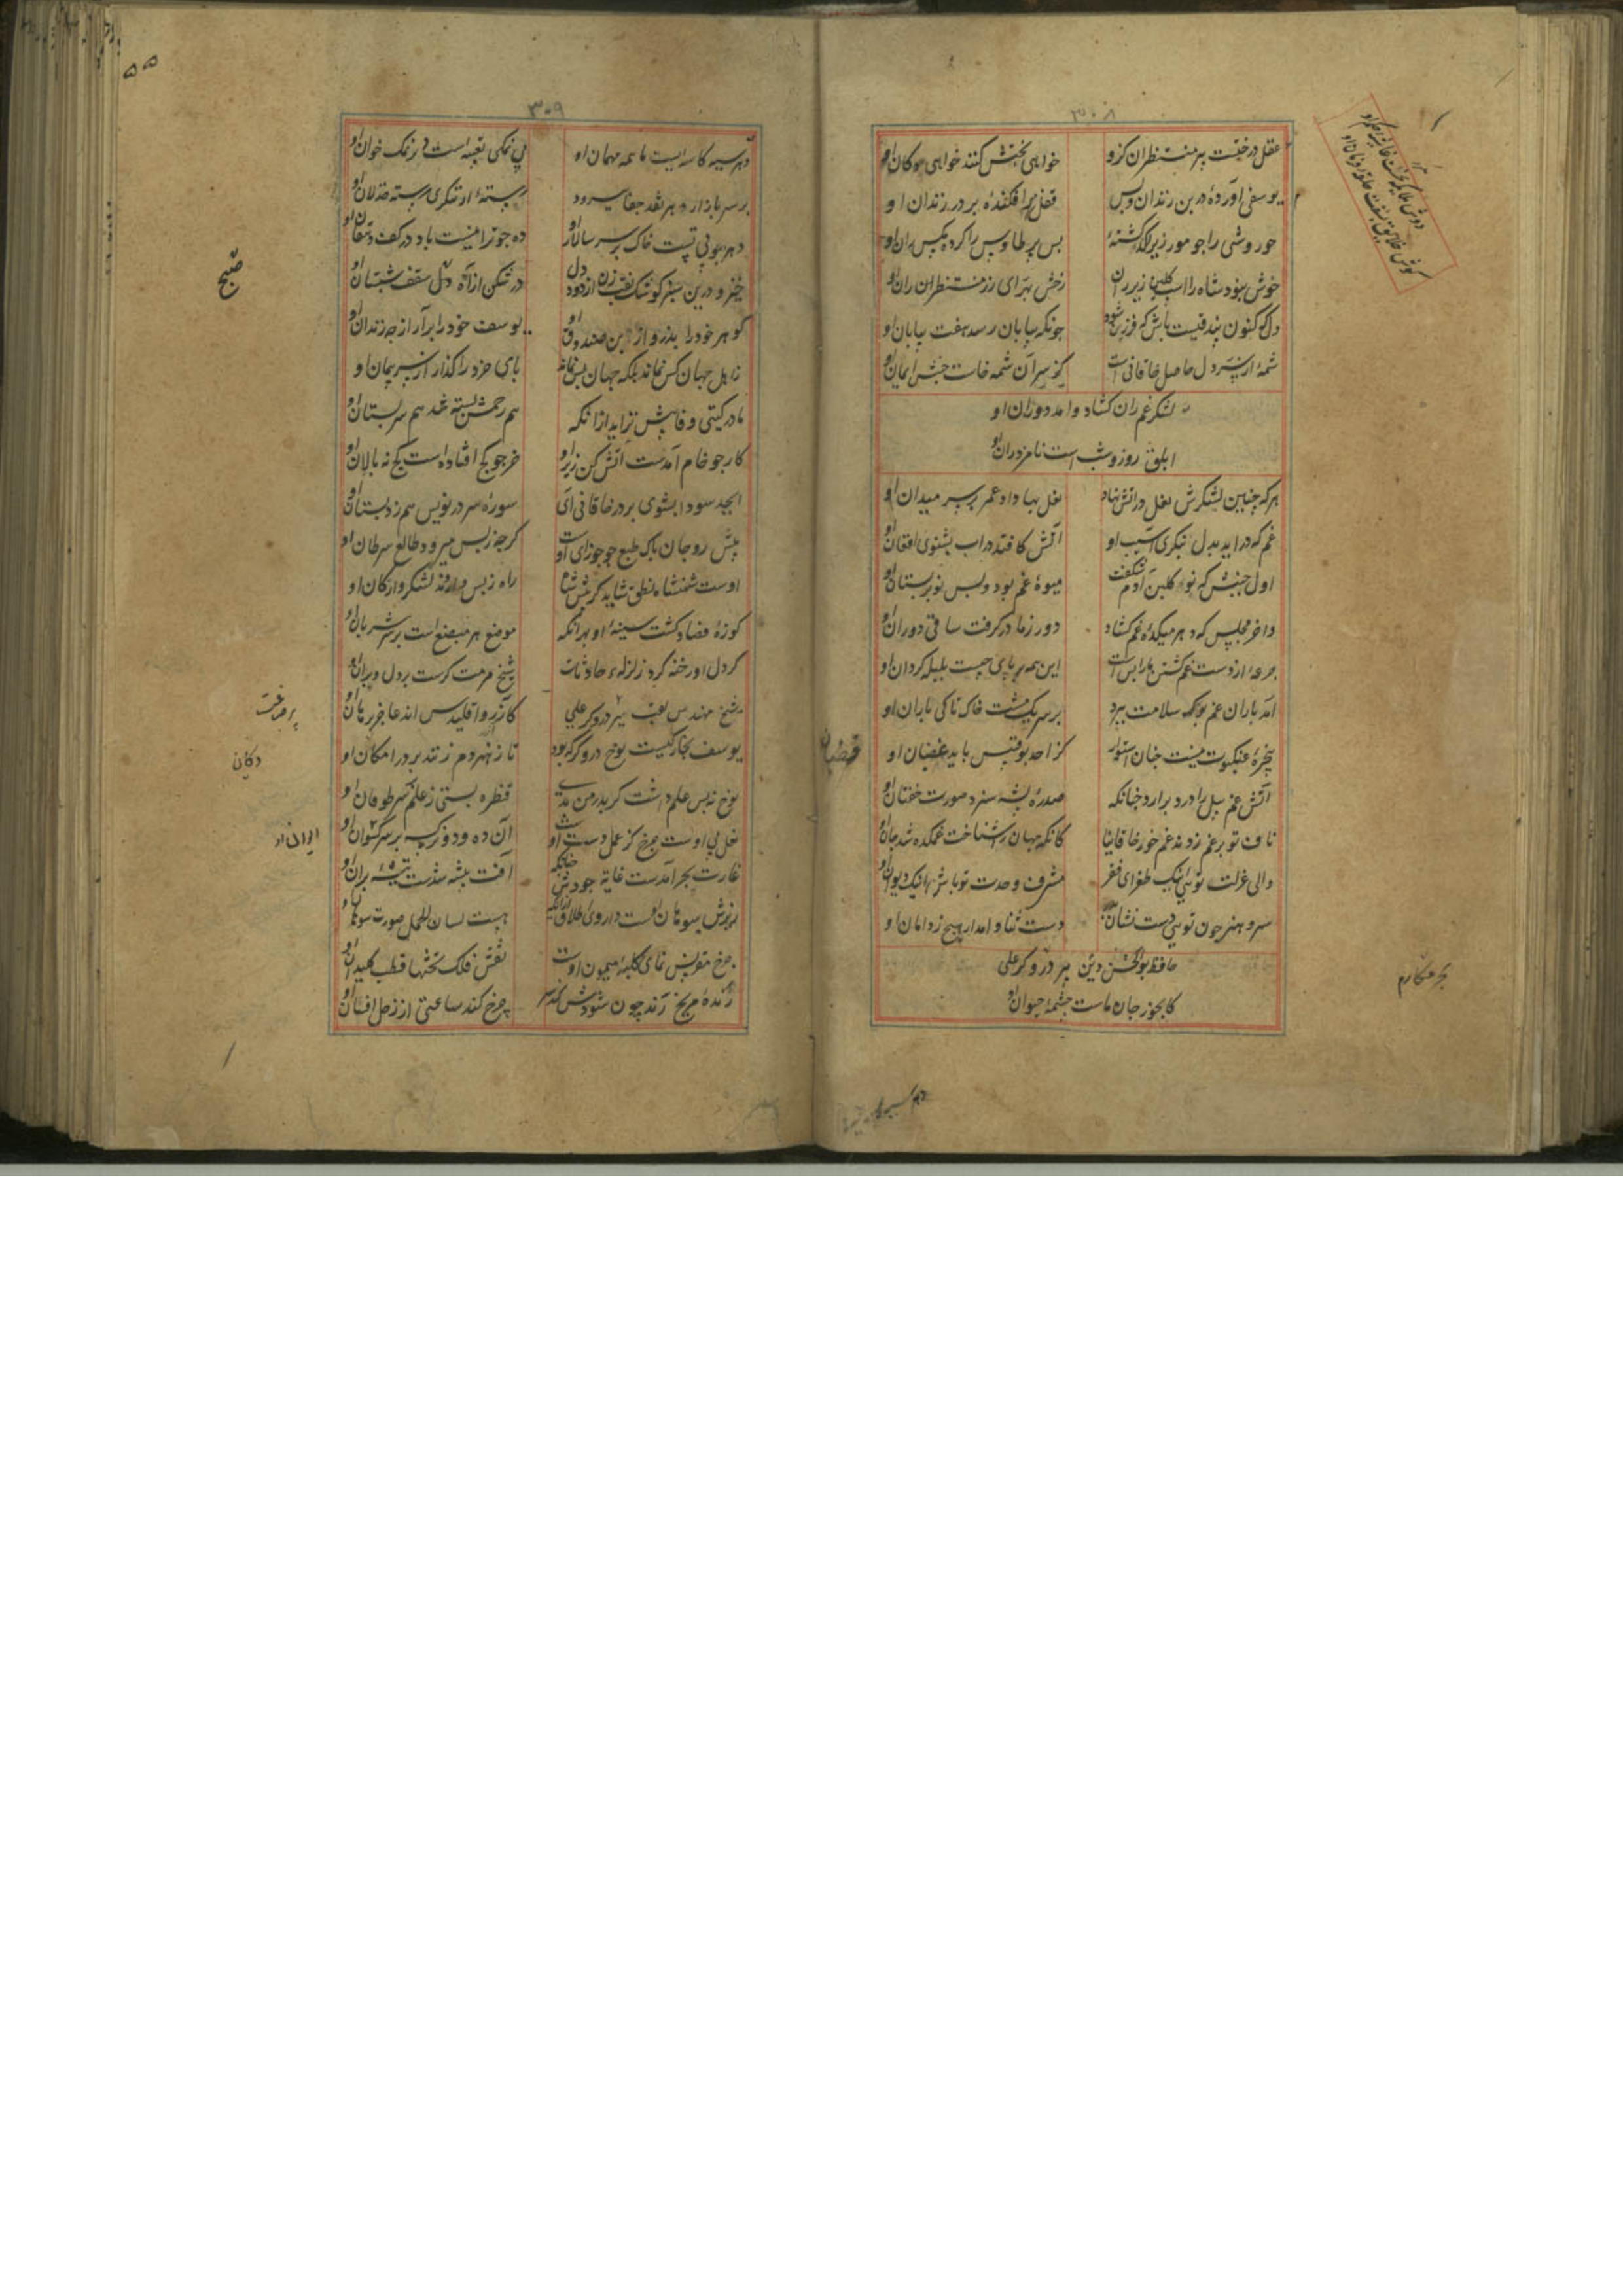 ۳۰۸
عقل درختیست پیر منتظران کزو
خواهی تختش کنند خواهی دوکان او
یوسفی آورده در بن زندان و پس
قفل زر افکنده بر در زندان او
حوروشی را چو مور زیر لکد کشته
بس پر طاوس را کرده مکس ران او
خوش نبود شاه را اسب کلین زیر ران
رخش بهرای زر منتظران ران او
دل که کنون بیدقیست باش که فرزین شود
چونکه بپایان رسد هفت بیابان او
شمهٔ از سر دل حاصل خاقانی است
کز سر آن شمه خاست جنبش ایمان او
لشکر غم ران کشاد و آمد دوران او
ابلق روز و شب است نامزد ران او
هرکه چنین لشکرش نعل در آتش نهاد
نعل بها داد عمر بر سر میدان او
غم که در اید بدل بنکری آسیب او
آتش کافتد در اب بشنوی افغان او
اول جنبش که نو کلبن آدم شکفت
میوهٔ غم بود و بس نوبر بستان او
واخر مجلس که دهر میکدهٔ غم کشاد
دور ز ما در کرفت ساقی دوران او
جرعهٔ از دست غم کشتن ما را بس است
این همه بر پای چیست بلبله کردان او
آمد باران غم بوکه سلامت ببرد
بر سر یک مشت خاک تا کی باران او
پنجرهٔ عنکبوت نیست چنان استوار
کز احد و بوقبیس باید غضبان او
آتش غم پیل را دود برارد چنانکه
صدرهٔ پشه سزد صورت خفتان او
ناف تو بر غم زدند غم خور خاقانیا
کانکه جهان را شناخت غمکده شد جان او
والی عزلت تویی اینک طغرای فقر
مشرف وحدت تو باش اینک دیوان او
سرو هنر چون تویی دست نشان
دست ثنا وامدار هیچ ز دامان او
حافظ بوالحسن دین پیر دروکر علی
کابخور جان ماست چشمهٔ حیوان او
بحر مکارم
۳۰۹
دهر سیه کاسه ایست ما همه مهمان او
بی نمکی تعبیه است در نمک خوان او
بر سر بازار دهر نقد جفا میرود
رستهٔ ار بنکری رستهٔ خذلان او
دهر چو بی تست خاک بر سر سالار او
ده چو ترا نیست باد در کف دهقان او
خیز و درین سبز کوشک نقب زن از دود دل
درشکن از آه دل سقف شبستان او
کوهر خود را بدزد از بن صندوق او
یوسف خود را برآر از چه زندان او
ز اهل جهان کس نماند بلکه جهان بس نماند
پای خرد را کذار از سر پیمان او
مادر کیتی وفا بیش نزاید از انکه
هم رحمش بسته شد هم سر پستان او
کار جو خام آمدست آتش کن زیر او
خر چو کج افتاده است کج نه پالان او
ابجد سودا بشوی بر در خاقانی آی
سورهٔ سر درنویس هم ز دبستان او
پیش رو جان پاک طبع چو جوزای اوست
کرچه ز پس میرود طالع سرطان او
اوست شهنشاه نطق شاید کر پیش شاه
راه ز پس وا روند لشکر و ارکان او
کوزهٔ فصاد کشت سینهٔ او بهر انکه
موضع هر مبضع است بر سر شریان او
کر دل او رخنه کرد زلزله حادثات
شیخ مرمت کرست بر دل ویران او
شیخ مهندس لقب پیر دروکر علی
کآزر و اقلیدس اند عاجز برهان او
یوسف نجار کیست نوح دروکر که بود
تا ز هنر دم زنند بر در امکان او
نوح نه بس علم داشت کر پدر من بدی
قنطره بستی ز علم بر سر طوفان او
غارت بحر آمدست غایة جودش چنانکه
آفت بیشه شدست تیشهٔ بران او
هست لسان الحمل صورت سوهان او
چرخ مقرنس نمای کلبهٔ میمون اوست
نقش فلک تختها قطب کلیدان او
رندهٔ مریخ رند چون شودش کند سر
چرخ کند ساعتی از زحل افسان او
صبح
دکان